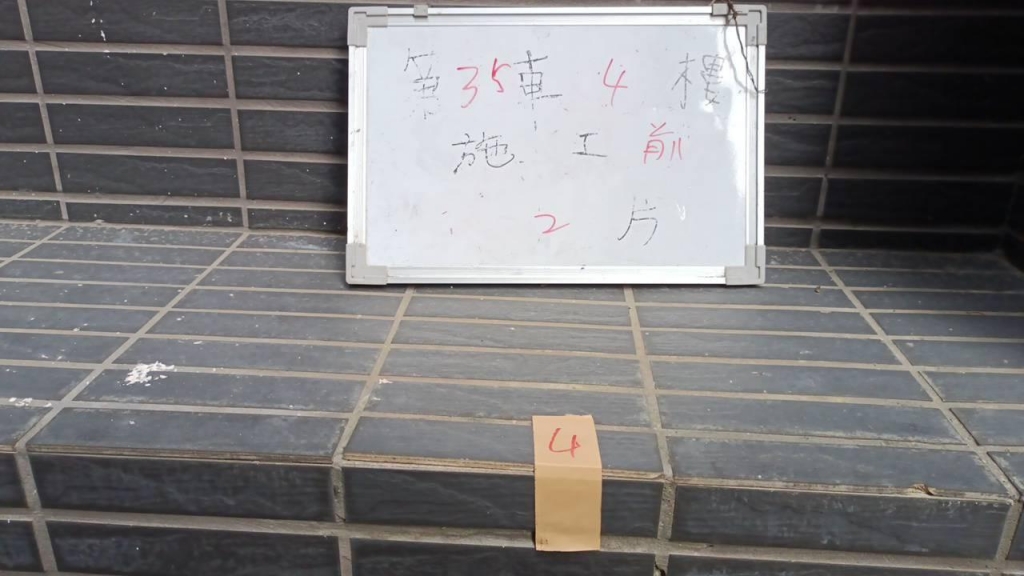 第35車4樓
施工前
2片
4